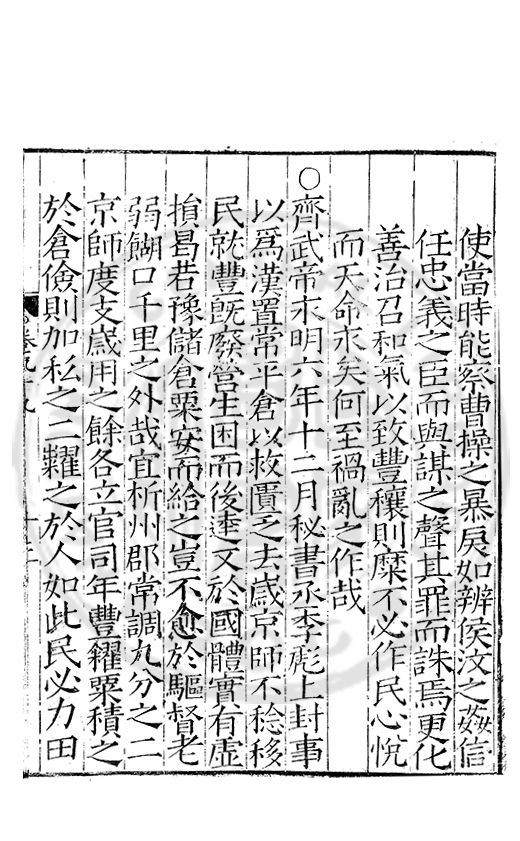 使當時能察曹操之暴戾如辨侯汶之姦信
任忠義之臣而與謀之聲其罪而誅焉更化
善治召和氣以致豐穰則糜不必作民心悅
而天命永矣何至禍亂之作哉
○齊武帝永明六年十二月秘書丞李彪上封事
以爲漢置常平倉以救匱乏去歲京師不稔移
民就豐旣廢營生困而後達又於國體實有虛
損曷若豫儲倉粟安而給之豈不愈於驅督老
弱餬口千里之外哉宜析州郡常調九分之二
京師度支歲用之餘各立官司年豐糴粟積之
於倉儉則加私之二糶之於人如此民必力田